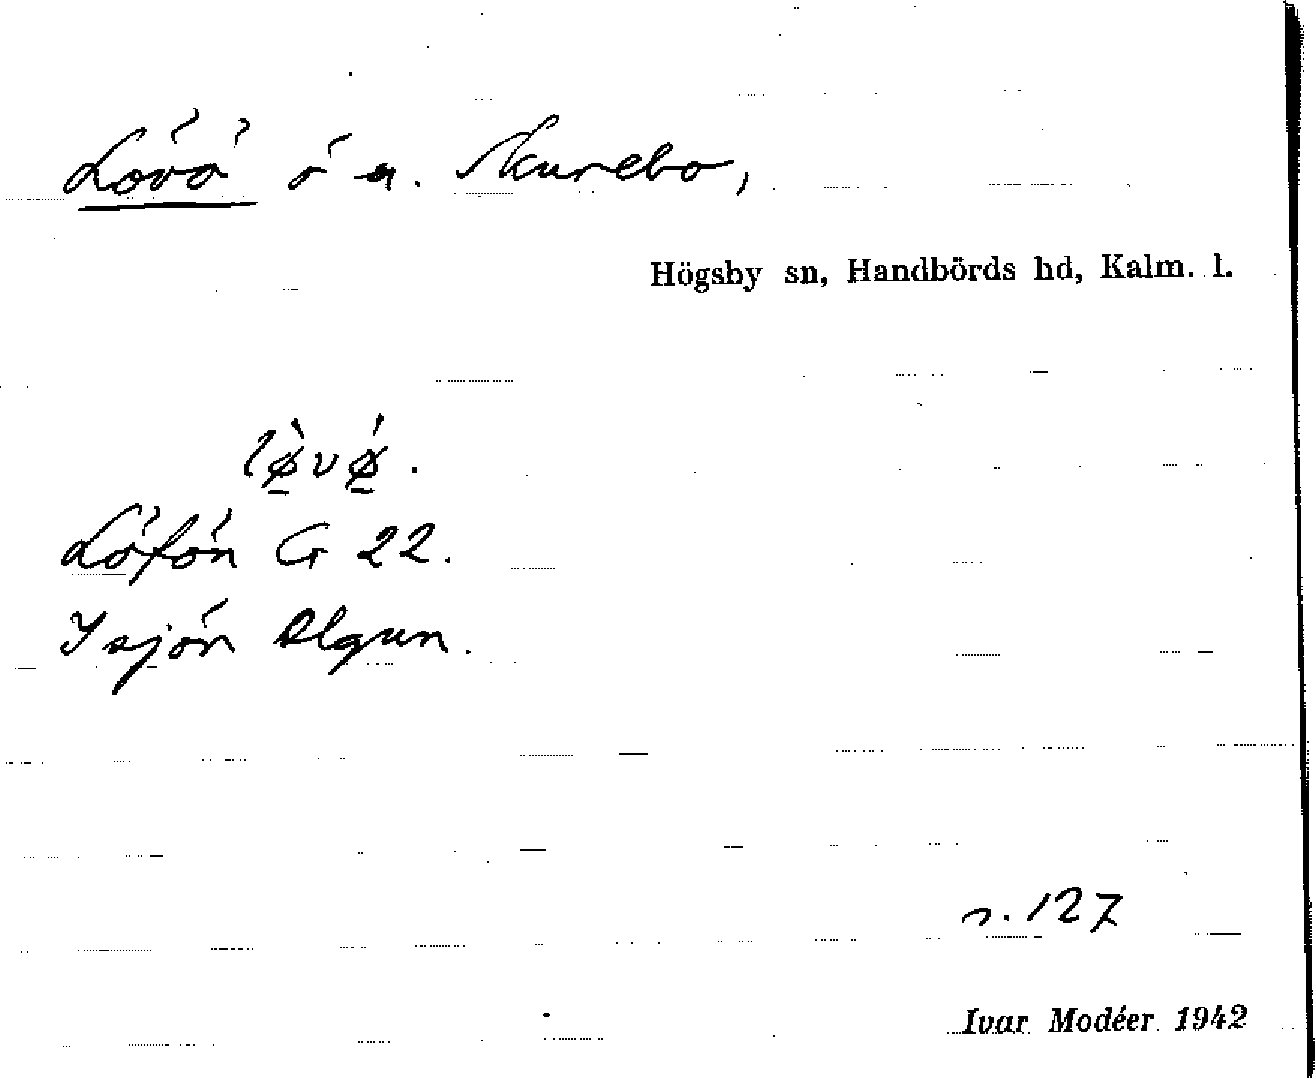 Lövö ö u. Skurebo,
Högsby sn, Handbörds hd, Kalm. l.
lø̀vǿ.
Löfön G 22.
I sjön Algun.
s. 127
Ivar Modéer 1942